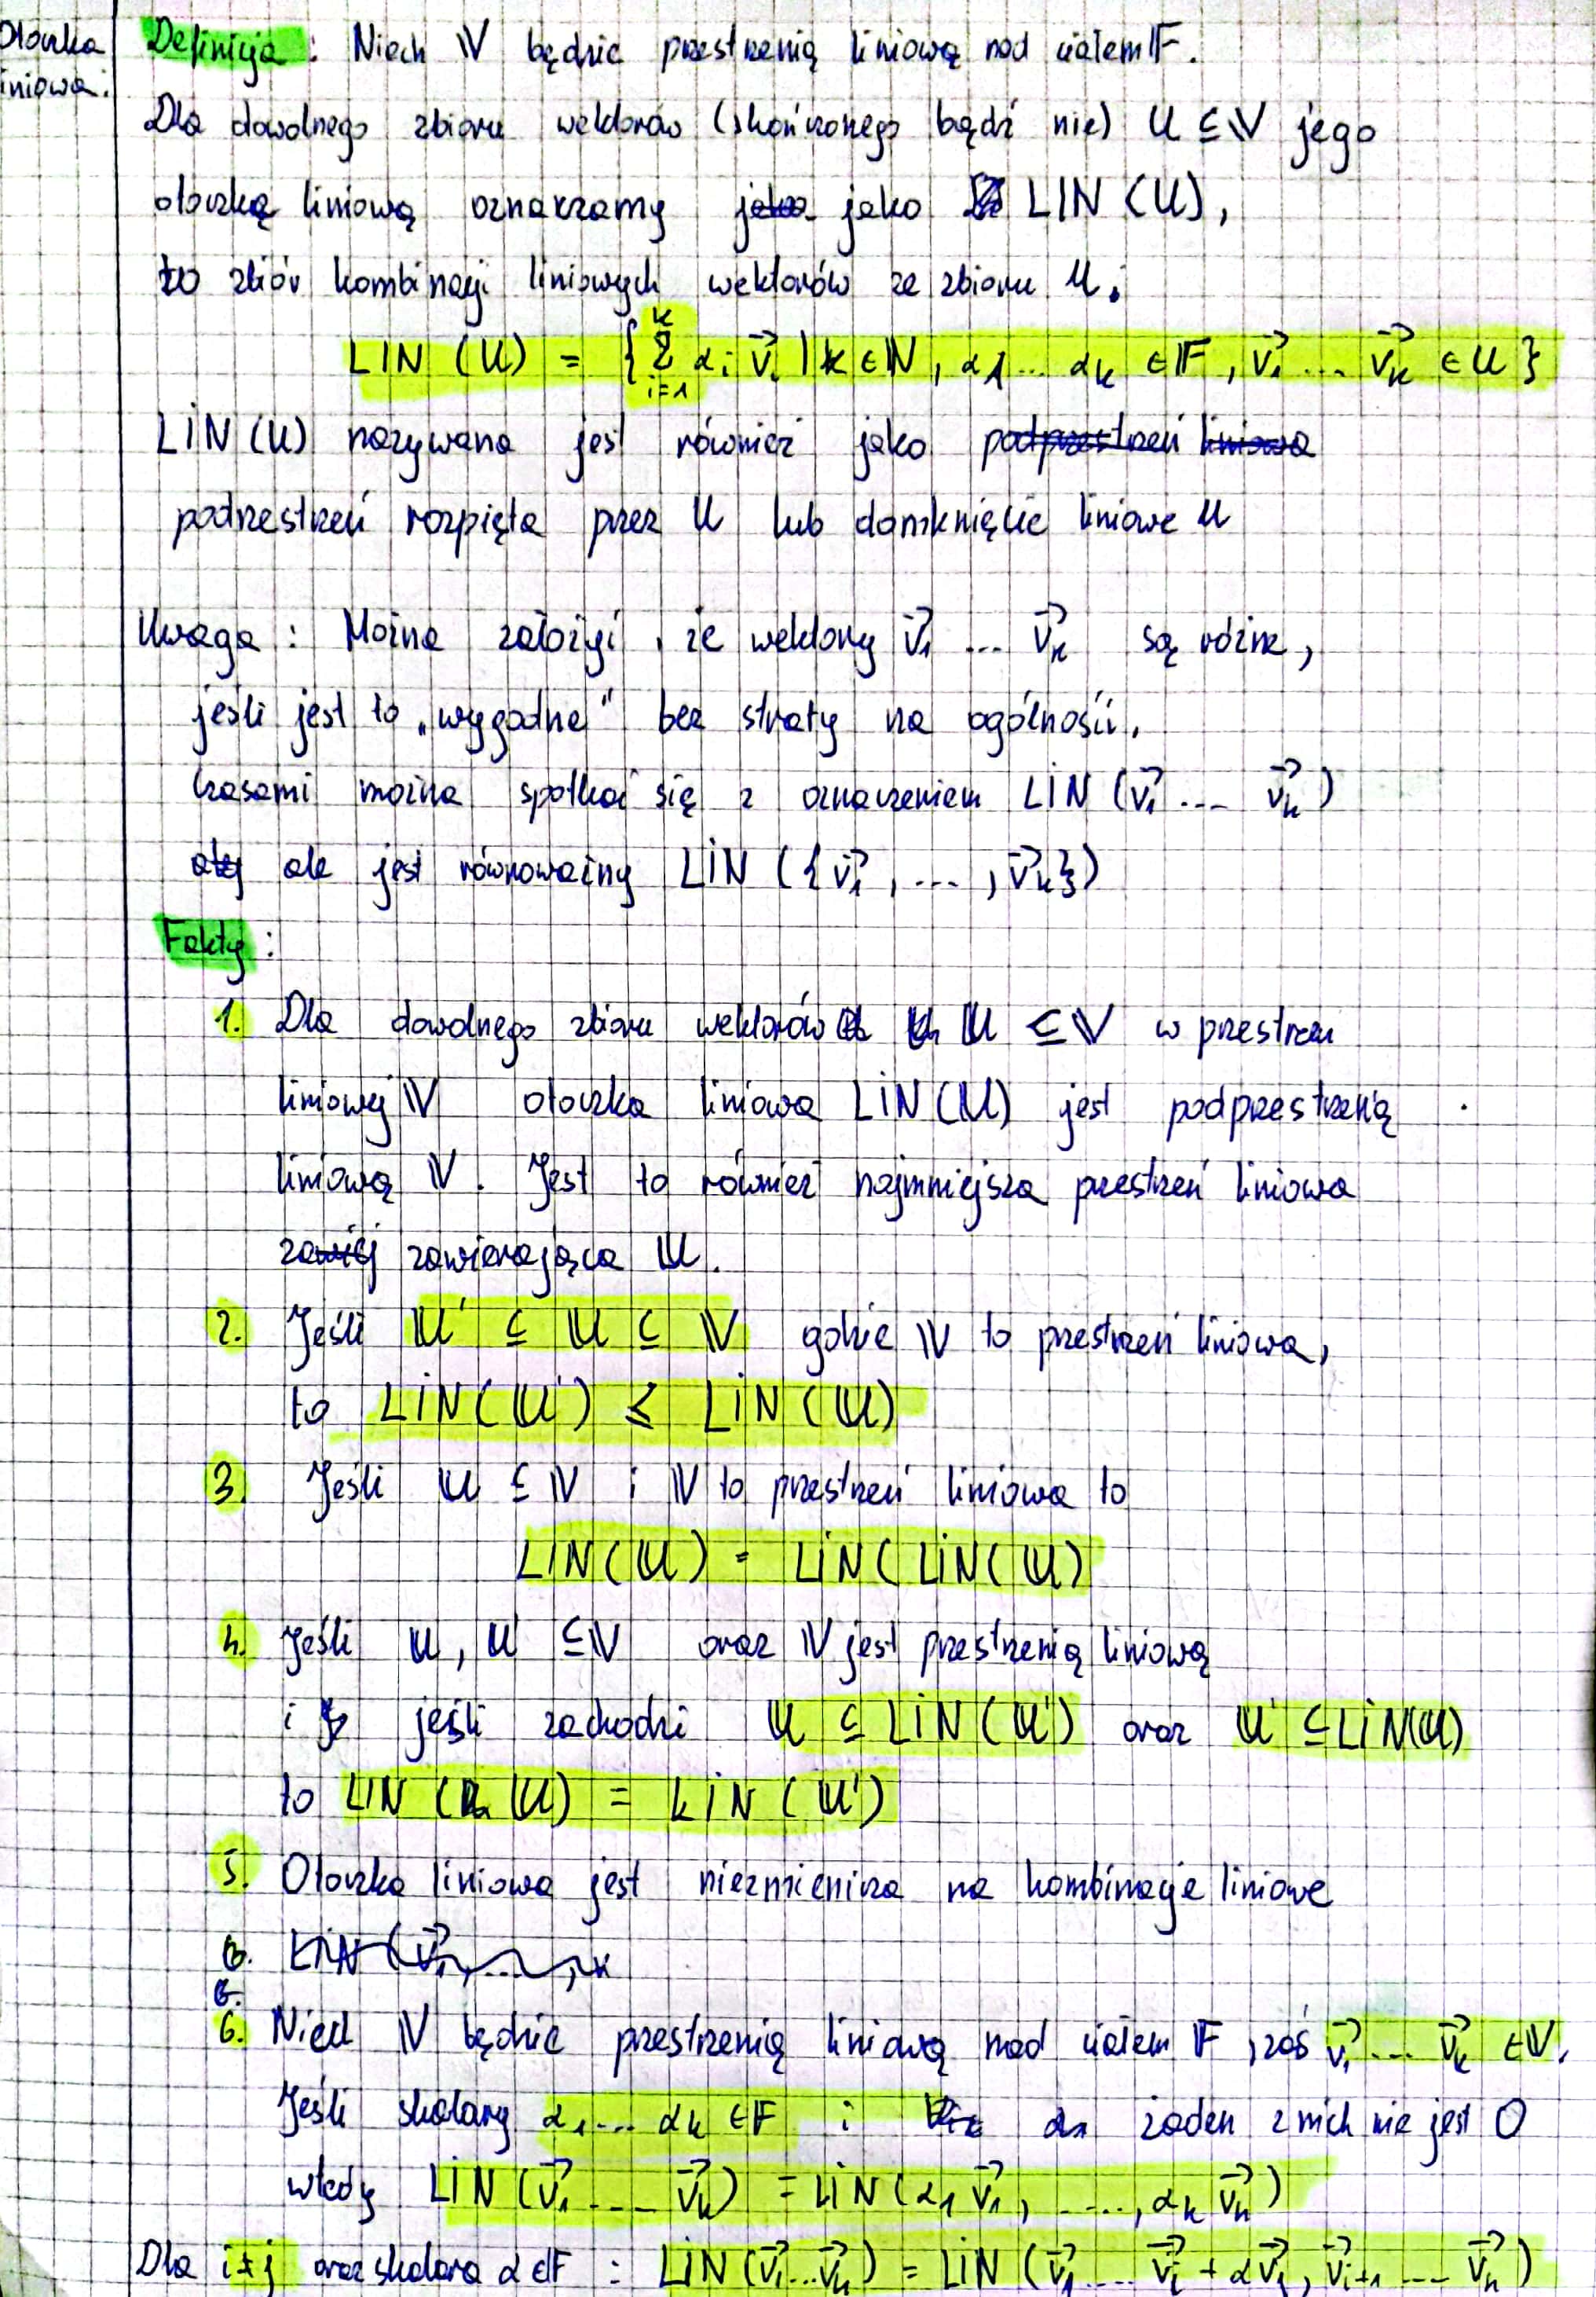 Otoczka
liniowa:
Definicja : Niech V będzie przestrzenią liniową nad ciałem F.
Dla dowolnego zbioru wektorów (skończonego bądź nie) U ⊆ V jego
otoczką liniową oznaczamy jako LIN (U),
to zbiór kombinacji liniowych wektorów ze zbioru U.
LIN (U) = { Σ_{i=1}^{k} α_i v⃗_i | k ∈ N, α_1 ... α_k ∈ F, v⃗_1 ... v⃗_k ∈ U }
LIN (U) nazywana jest również jako podprzestrzeń liniowa
podrzestrzeń rozpięta przez U lub domknięcie liniowe U
Uwaga : Można założyć, że wektory v⃗_1 ... v⃗_k są różne,
jeśli jest to „wygodne" bez straty na ogólności.
Czasami można spotkać się z oznaczeniem LIN (v⃗_1 ... v⃗_k)
ale jest równoważny LIN ({v⃗_1, ..., v⃗_k})
Fakty :
1. Dla dowolnego zbioru wektorów U ⊆ V w przestrzeni
liniowej V otoczka liniowa LIN(U) jest podprzestrzenią
liniową V. Jest to również najmniejsza przestrzeń liniowa
zawierająca U.
2. Jeśli U' ⊆ U ⊆ V gdzie V to przestrzeń liniowa,
to LIN(U') ≤ LIN(U)
3. Jeśli U ⊆ V i V to przestrzeń liniowa to
LIN(U) = LIN(LIN(U)
4. Jeśli U, U' ⊆ V oraz V jest przestrzenią liniową
i jeśli zachodzi U ⊆ LIN(U') oraz U' ⊆ LIN(U)
to LIN (U) = LIN (U')
5. Otoczka liniowa jest niezmiennicza na kombinacje liniowe
6. LIN (v⃗_1, ..., k
6. Niech V będzie przestrzenią liniową nad ciałem F, zaś v⃗_1 ... v⃗_k ∈ V.
Jeśli skalary α_1 ... α_k ∈ F i żaden z nich nie jest 0
wtedy LIN (v⃗_1 ... v⃗_k) = LIN (α_1 v⃗_1, ....., α_k v⃗_k)
Dla i ≠ j oraz skalara α ∈ F : LIN (v⃗_1 ... v⃗_k) = LIN (v⃗_1 ... v⃗_i + α v⃗_j, v⃗_{i+1} ... v⃗_k)